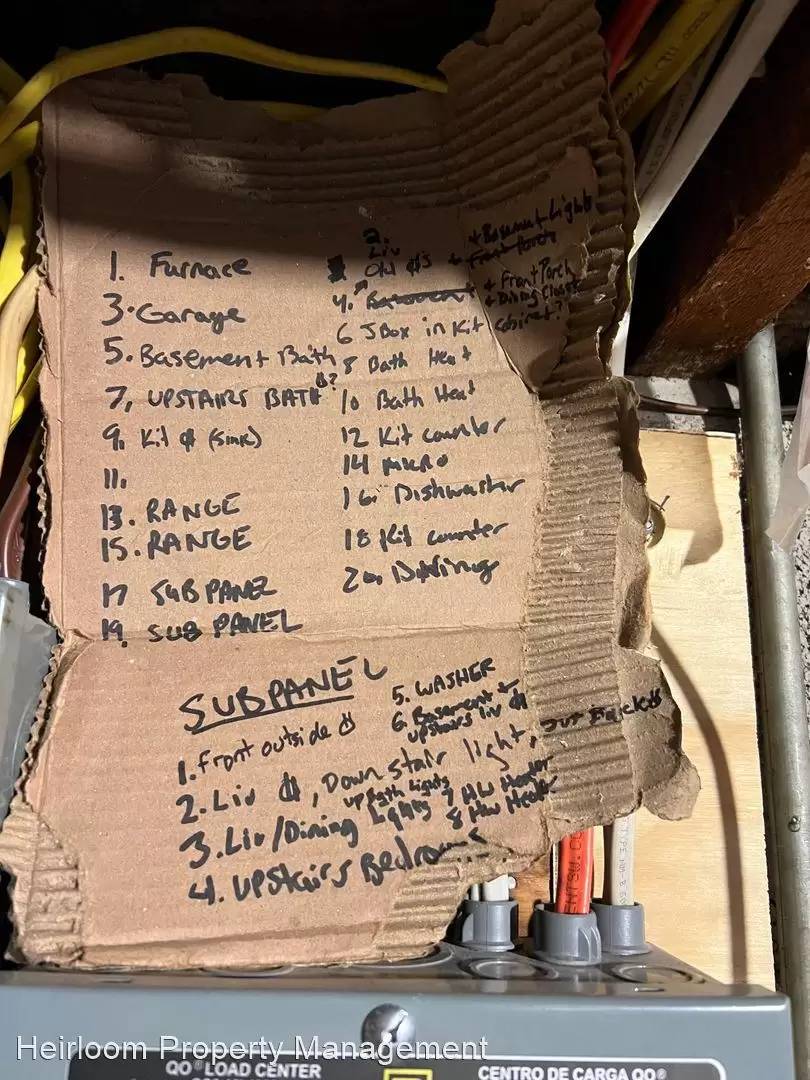 1. Furnace
3. Garage
5. Basement Bath
7, UPSTAIRS BATH
9. Kit (sink)
11.
13. RANGE
15. RANGE
17 SUBPANEL
19. SUB PANEL
2.
Liv
Old + Basement Lights
4. + Front Porch
+ Dining Closet
6 JBox in Kit cabinet?
8 Bath Heat
10 Bath Heat
12 Kit counter
14 MICRO
16. Dishwasher
18 Kit counter
20. Dining
SUBPANEL
1. Front outside
2. Liv , Down stair light, out Back
3. Liv/Dining Lights
up Bath Lights
4. Upstairs Bedrooms
5. WASHER
6. Basement +
upstairs liv
7 HW Heater
8 HW Heater
TYPE NM-B
Heirloom Property Management
QO® LOAD CENTER
CENTRO DE CARGA QO®